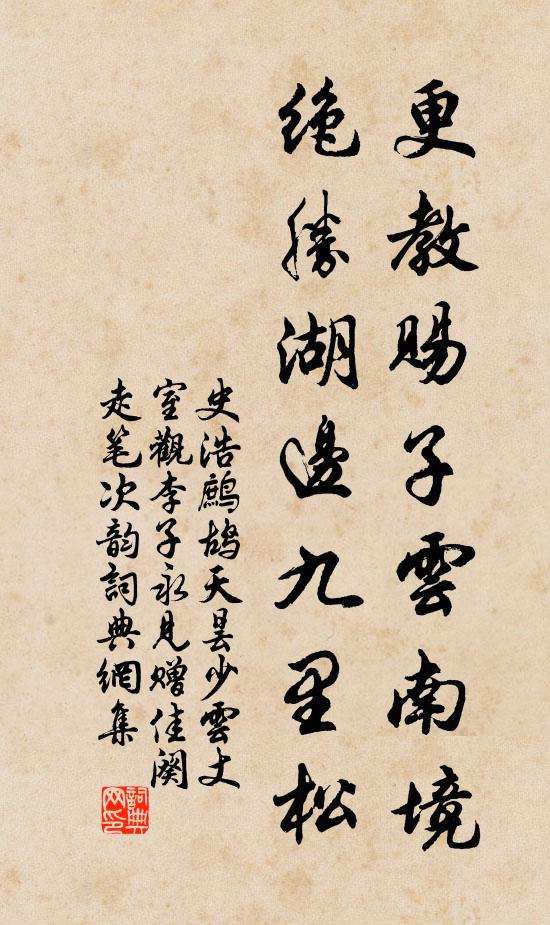 更教賜子雲南境
絶勝湖邊九里松
史浩鷓鴣天曇少雲丈
室觀李子永見贈佳闋
走笔次韵詞典網集
詞典
网印